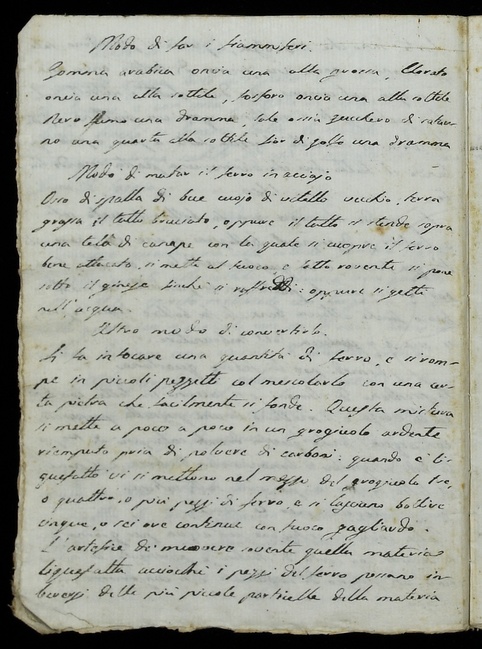 Modo di far i fiammiferi.
Gomma arabica oncia una alla grossa, Clorato
oncia una alla sottile, fosforo oncia una alla sottile
Nero fumo una dramma, sale ossia zucchero di satur-
no una quarta alla sottile fior di zolfo una dramma
Modo di mutar il ferro in acciajo
Osso di spalla di bue cuojo di vitello vecchio, terra
grassa il tutto bruciato, oppure il tutto si stende sopra
una tela di canape con la quale si cuopre il ferro
bene attaccato, si mette al fuoco e fatto rovente si pone
sotto il finchè si raffreddi: oppure si getti
nell'acqua.
Altro modo di convertirlo.
Si fa infocare una quantità di ferro, e si rom-
pe in piccoli pezzetti col mescolarlo con una cer-
ta pietra che facilmente si fonde. Questa mistura
si mette a poco a poco in un crogiuolo ardente
riempiuto pria di polvere di carboni: quando è li-
quefatto vi si mettono nel mezzo del crogiuolo tre,
o quattro, o più pezzi di ferro, e si lasciano bollire
cinque, o sei ore continue con fuoco gagliardo.
L'artefice de' muovere sovente quella materia
liquefatta acciocchè i pezzi del ferro possano im-
beversi delle più piccole particelle della materia